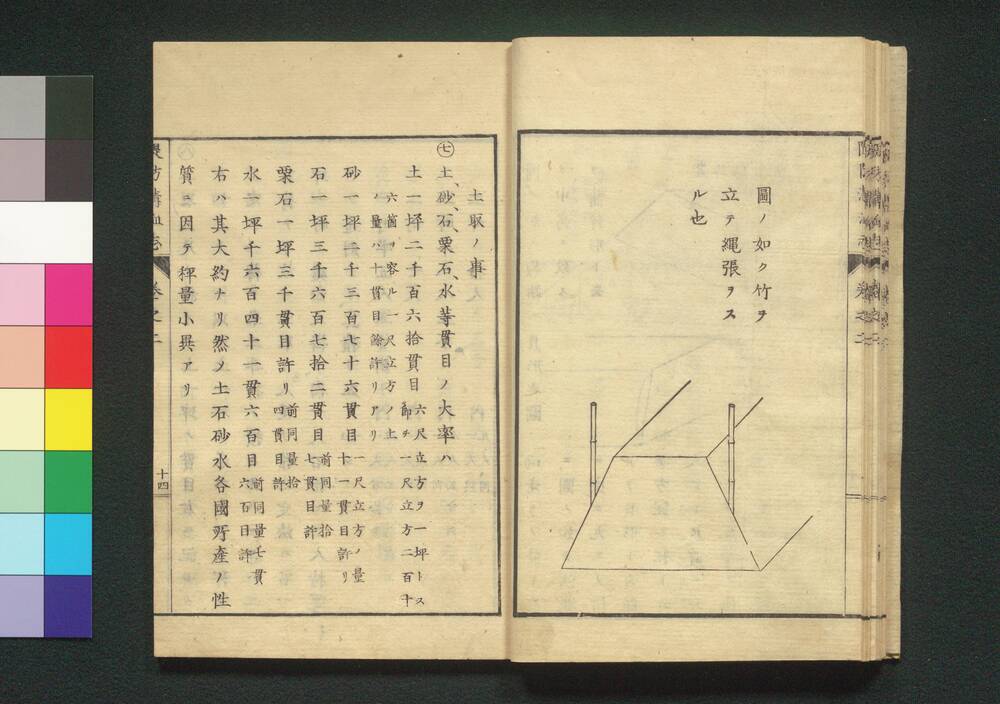 圖ノ如ク竹ヲ
立テ繩張ヲス
ル也
土取ノ事
㊆土、砂、石、栗石、水等貫目ノ大率ハ
土一坪二千百六拾貫目六尺立方ヲ一坪トス
即チ一尺立方二百十
六箇ヲ容ル一尺立方ノ土
ノ量ハ十貫目餘許リアリ
砂一坪二千三百七十六貫目一尺立方ノ量
十一貫目許リ
石一坪三千六百七拾二貫目前同量拾
七貫目許
栗石一坪三千貫目許リ前同量拾
四貫目許
水一坪千六百四十一貫六百目前同量七貫
六百目許
右ハ其大約ナリ然メ土石砂水各國所產ノ性
質ニ因テ秤量小異アリ
卷之二
十四